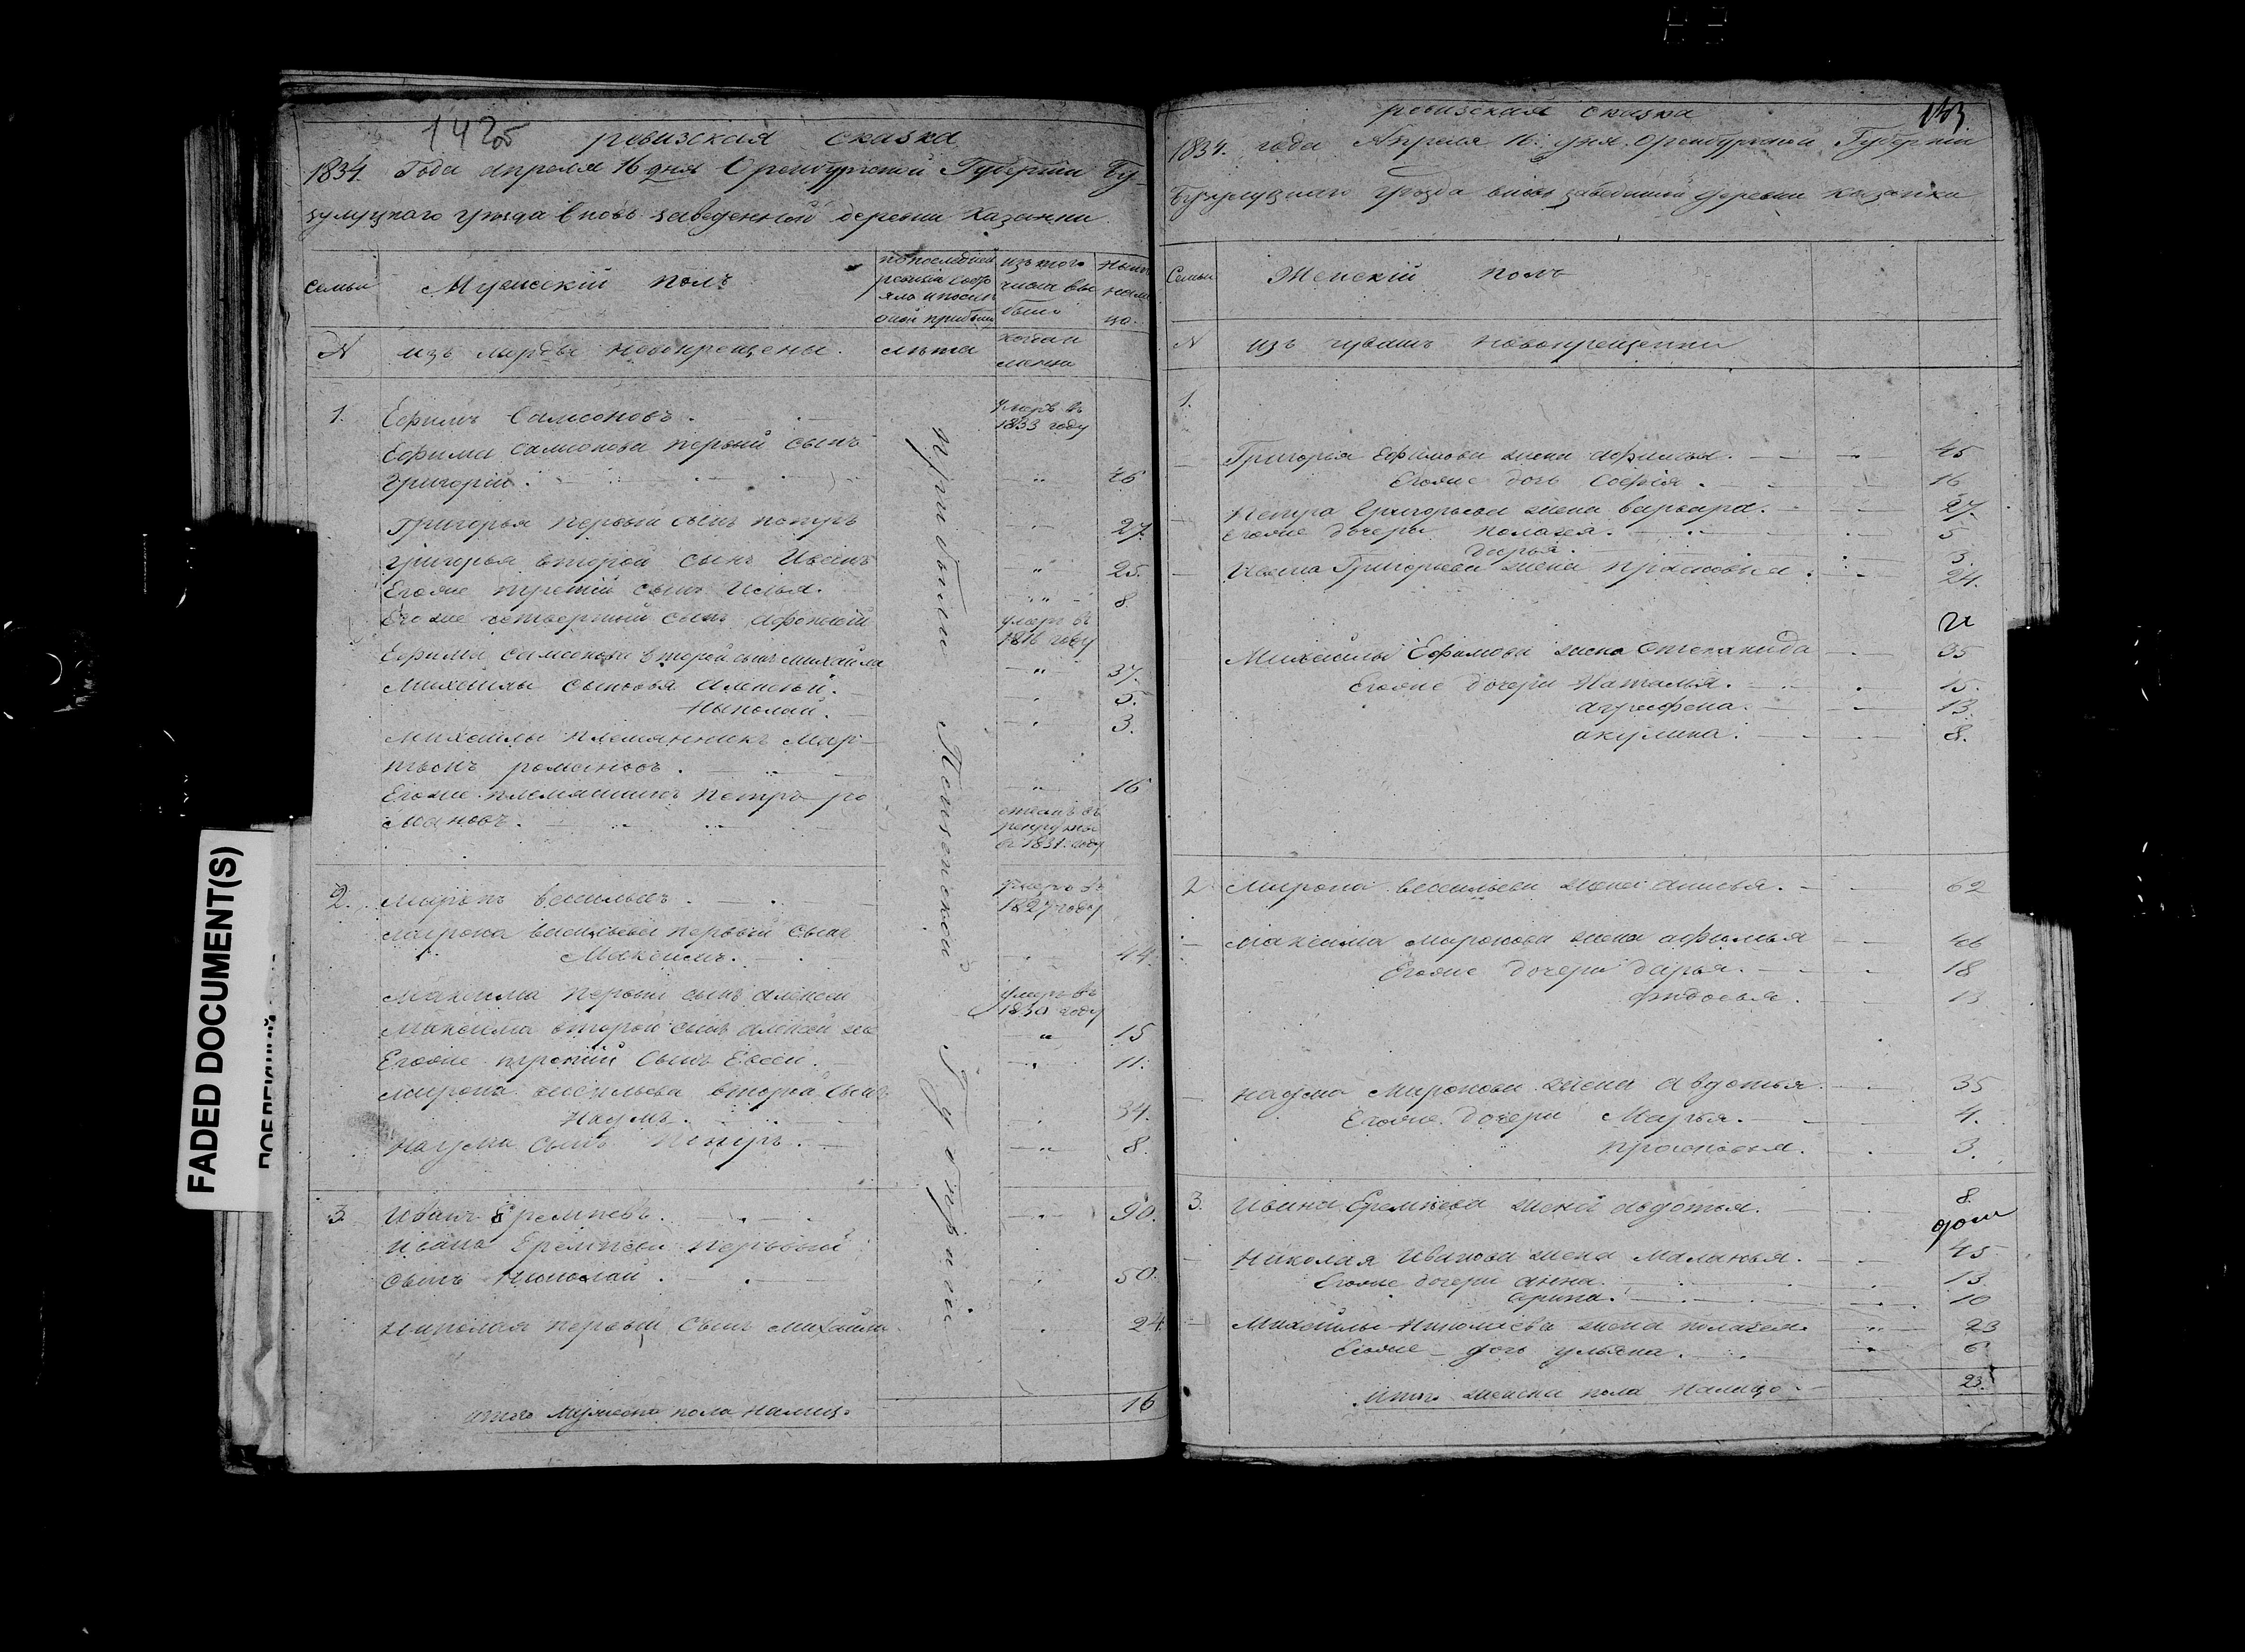 1425 ревизская сказка
1834. Года апреля 16 дня Оренбургской Губернии Бу-
зулуцкаго уезда вновь заведенной деревни Казанки
семьи Мужескій полъ
по последней ревизіи состояло и после оной прибыло
изъ того числа выбыло
ныне налицо.
№ изъ мордвы новокрещены. лета когда имянно
1. Ефимъ Самсоновъ. умеръ въ 1833 году
Ефима Самсонова первый сынъ
Григорій. 46
Григорья первый сынъ петръ 27.
Григорья второй сынъ Иванъ 25.
Егоже третій сынъ Илья. 8.
Егоже четвертый сынъ Афонасій умеръ въ 1816 году
Ефима Самсонова второй сынъ михайла 37.
Михайлы сыновья Алексей. 5.
Николай. 3.
Михайлы племянникъ Мар-
тынъ романовъ. 16
Егоже племянникъ петръ ро
мановъ. отданъ въ рекруты въ 1831. году
2. миронъ васильевъ. умеръ въ 1827 году
мирона васильева первый сынъ
Максимъ. 44.
Максима первый сынъ алексей умеръ въ 1830 году
Максима второй сынъ алексей же 15
Егоже третій сынъ Евсей. 11.
мирона васильева второй сынъ
Наумъ. 34.
Наума сынъ петръ. 8.
3. Иванъ Еремеевъ. 90.
Ивана Еремеева первый
сынъ Николай. 50.
Николая первый сынъ михайла 24.
итого мужеска пола налицо 16
Прибыли Пензенской Губерніи
ревизская сказка 143
1834. года Апреля 16. дня Оренбургской Губерніи
Бузулуцкаго уезда вновь заведенной деревни казанки
Семьи Женскій полъ
№ изъ чувашъ новокрещенни
1.
Григорья Ефимова жена афимья. 45
Егоже дочь Софія. 16
петра Григорьева жена варвара. 27.
егоже дочери пелагея. 5
дарья. 3.
Ивана Григорьева жена прасковья. 24.
Михайлы Ефимова жена степанида 35
Егоже дочери Наталья. 15.
аграфена. 13.
акулина. 8.
2 мирона васильева жена анисья. 62
Максима миронова жена афимья 46
Егоже дочери дарья. 18
федосья. 13
наума Миронова жена авдотья. 35
Егоже дочери Марья. 4.
прасковья. 3.
3. Ивана Еремеева жена авдотья. 8.
Николая Иванова жена Маланья. 45
Егоже дочери анна. 13.
арина. 10
Михайлы Николаева жена пелагея. 23
Егоже дочь ульяна. 6
итого женска пола налицо. 23.
FADED DOCUMENT(S)